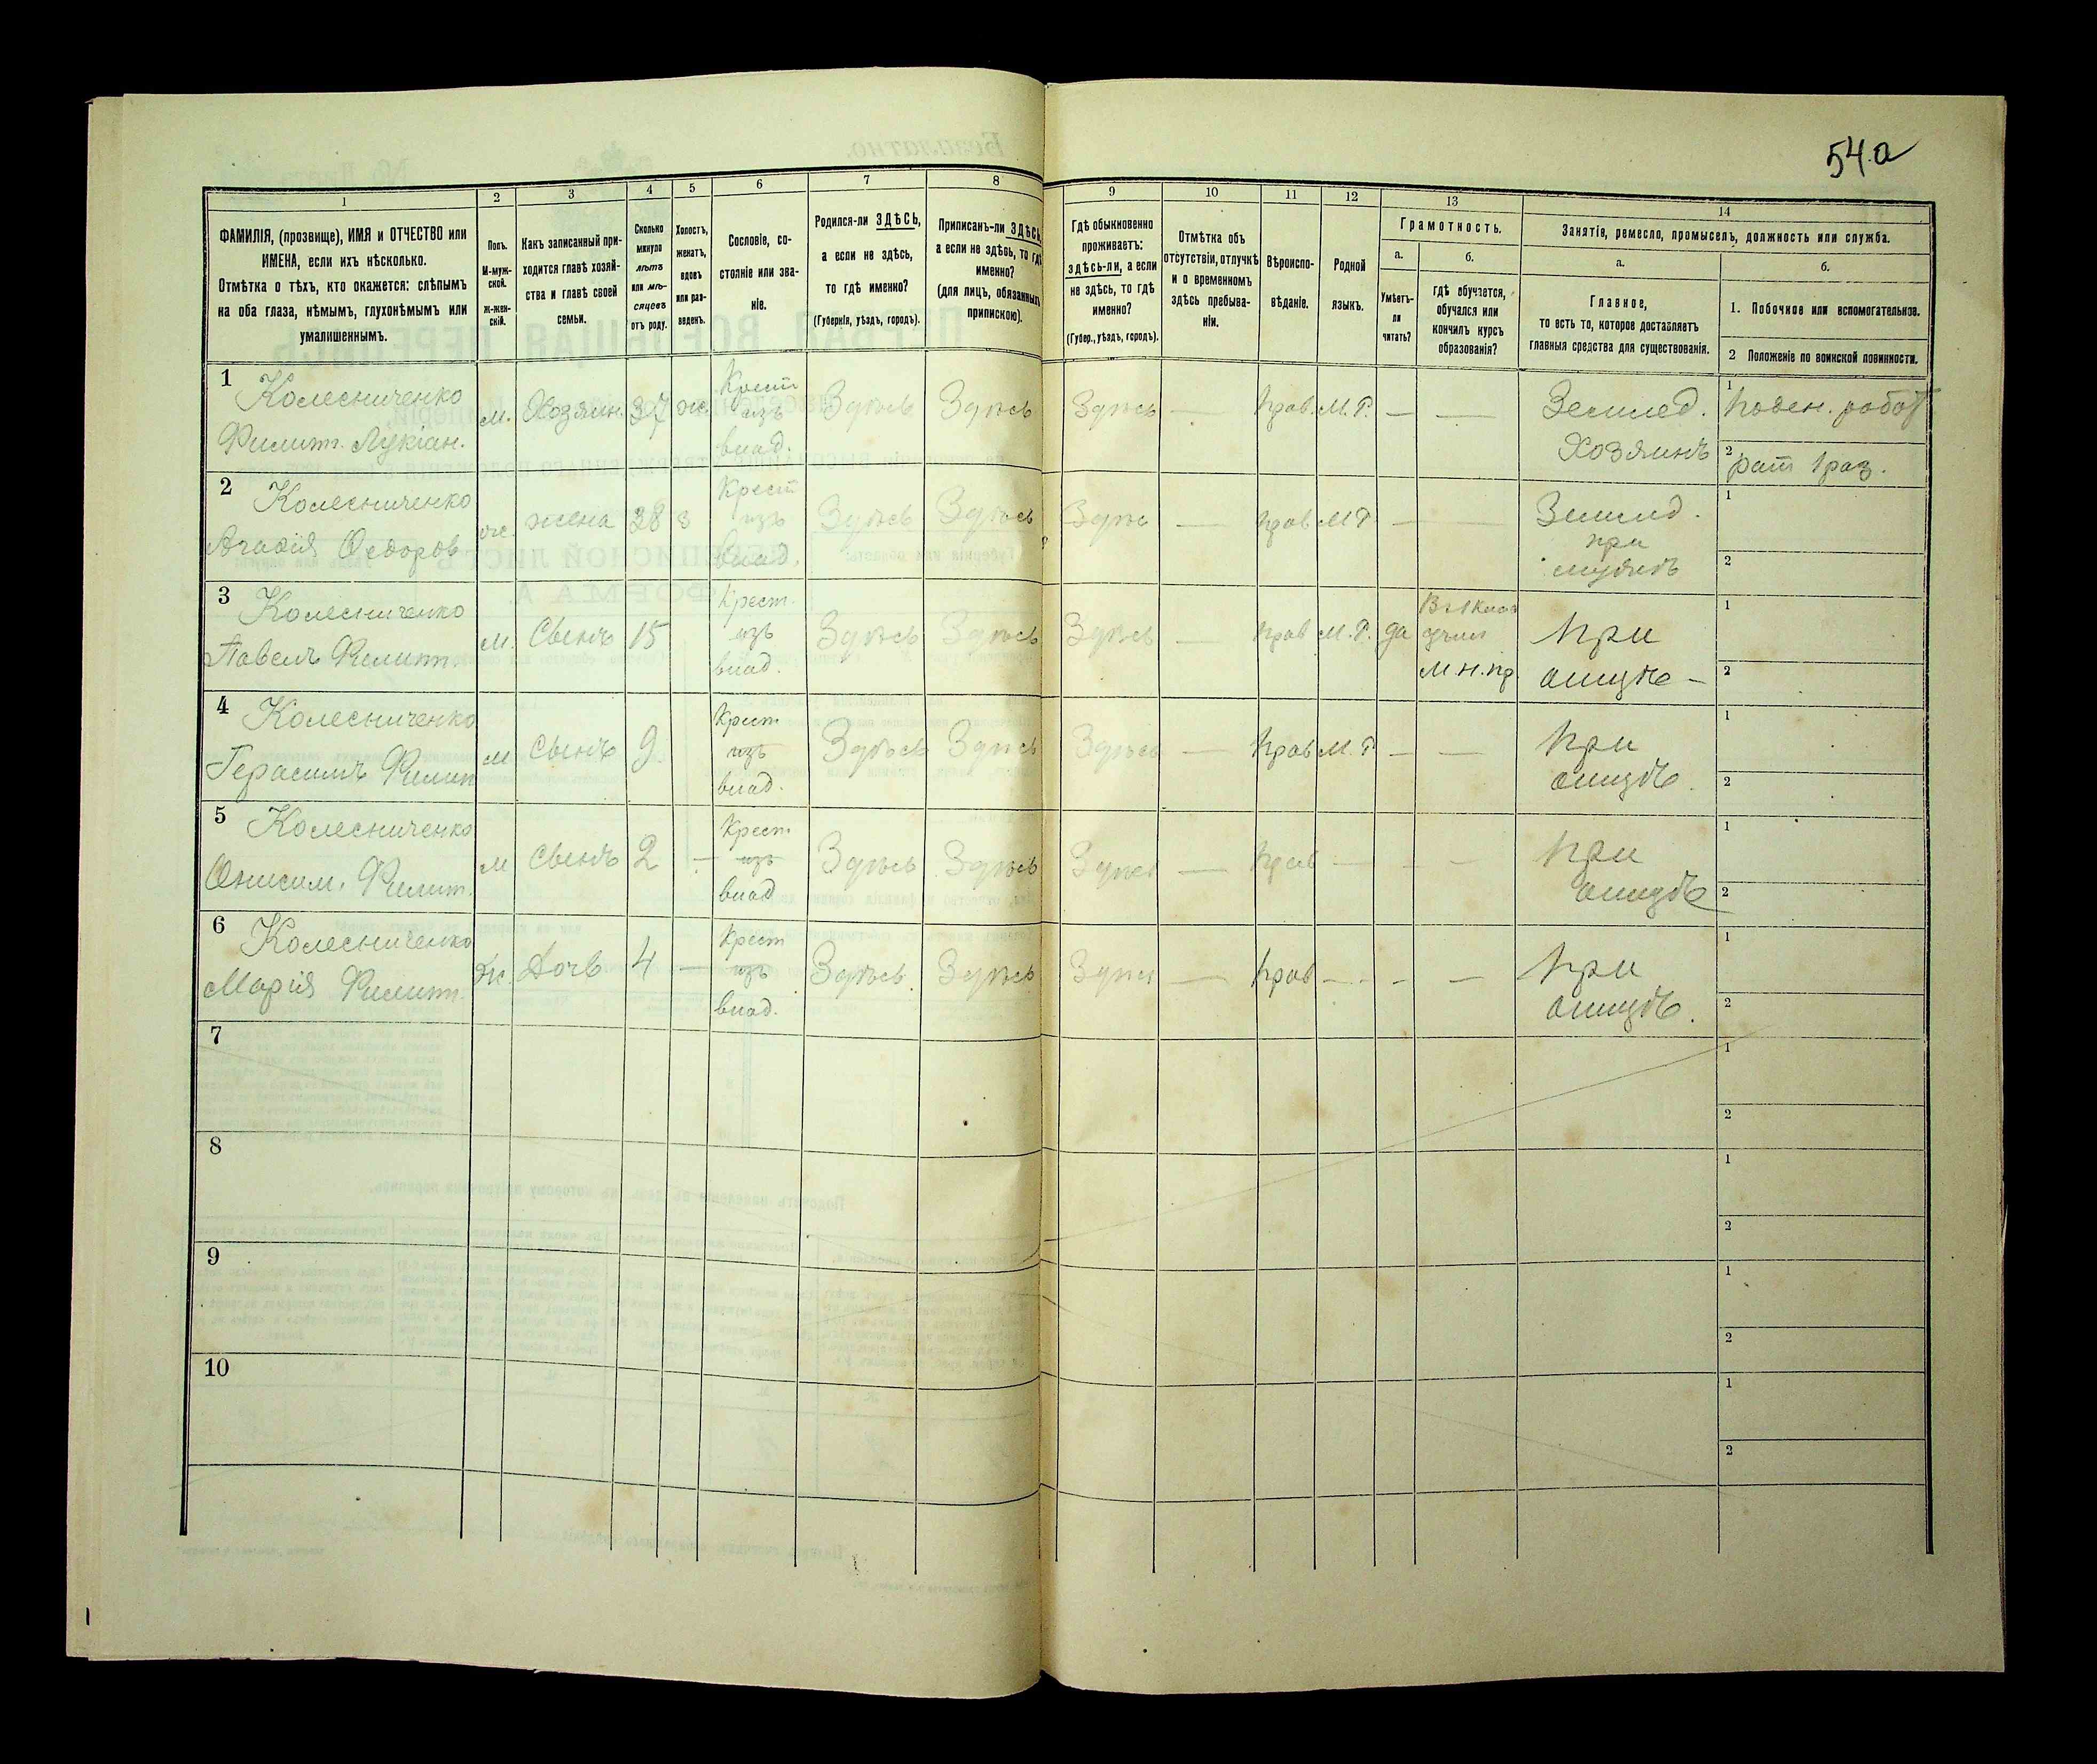 54.а
1 2 3 4 5 6 7 8 9 10 11 12 13 14
ФАМИЛІЯ, (прозвище), ИМЯ и ОТЧЕСТВО или
ИМЕНА, если ихъ нѣсколько.
Отмѣтка о тѣхъ, кто окажется: слѣпымъ
на оба глаза, нѣмымъ, глухонѣмымъ или
умалишеннымъ.
Полъ.
М-муж-
ской.
ж-жен-
скій.
Какъ записанный при-
ходится главѣ хозяй-
ства и главѣ своей
семьи.
Сколько
минуло
лѣтъ
или мѣ-
сяцевъ
отъ роду.
Холостъ,
женатъ,
вдовъ
или раз-
веденъ.
Сословіе, со-
стояніе или зва-
ніе.
Родился-ли ЗДѢСЬ,
а если не здѣсь,
то гдѣ именно?
(Губернія, уѣздъ, городъ).
Приписанъ-ли ЗДѢСЬ,
а если не здѣсь, то гдѣ
именно?
(для лицъ, обязанныхъ
припискою).
Гдѣ обыкновенно
проживаетъ:
здѣсь-ли, а если
не здѣсь, то гдѣ
именно?
(Губер., уѣздъ, городъ).
Отмѣтка объ
отсутствіи, отлучкѣ
и о временномъ
здѣсь пребыва-
ніи.
Вѣроиспо-
вѣданіе.
Родной
языкъ.
Грамотность.
а.
Умѣетъ-
ли
читать?
б.
гдѣ обучается,
обучался или
кончилъ курсъ
образованія?
Занятія, ремесло, промыселъ, должность или служба.
а.
Главное,
то есть то, которое доставляетъ
главныя средства для существованія.
б.
1. Побочное или вспомогательное.
2 Положеніе по воинской повинности.
1 Колесниченко
Филипп. Лукіан.
м. Хозяин. 37 ж
Крест
изъ
влад.
Здѣсь Здѣсь Здѣсь — Прав. М. Р. — —
Землед.
Хозяинъ
1 Поден. работ
2 рат 1 раз.
2 Колесниченко
Агафія Ѳедоров
ж. жена 38 з
Крест
изъ
влад.
Здѣсь Здѣсь Здѣсь — Прав М Р. — —
Землед.
при
мужѣ
1
2
3 Колесниченко
Павелъ Филипп.
м. Сынъ 15
Крест.
изъ
влад.
Здѣсь Здѣсь Здѣсь — Прав М. Р. да
В 1 клас
учил
М.н.пр.
При
отцѣ —
1
2
4 Колесниченко
Герасимъ Филип
м Сынъ 9
Крест
изъ
влад.
Здѣсь Здѣсь Здѣсь — Прав М. Р — —
При
отцѣ.
1
2
5 Колесниченко
Онисим. Филип.
м Сынъ 2 —
Крест
изъ
влад
Здѣсь Здѣсь Здѣсь — Прав — — —
При
отцѣ
1
2
6 Колесниченко
Марія Филипп.
Ж. Дочь 4 —
Крест
изъ
влад.
Здѣсь. Здѣсь Здѣсь — Прав — — —
При
отцѣ.
1
2
7
1
2
8
1
2
9
1
2
10
1
2